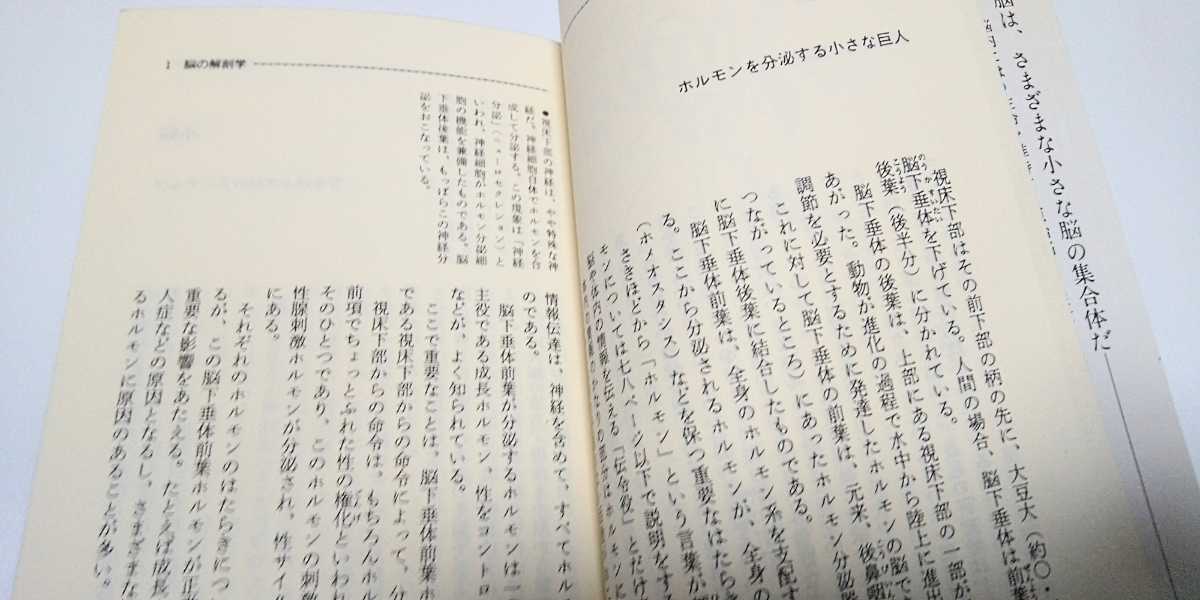 脳は、さまざまな小さな脳の集合体だ
ホルモンを分泌する小さな巨人
視床下部はその前下部の柄の先に、大豆大(約〇・
脳下垂体を下げている。人間の場合、脳下垂体は前葉
のうかすいたい
後葉(後半分)に分かれている。
こうよう
脳下垂体の後葉は、上部にある視床下部の一部が
あがった。動物が進化の過程で水中から陸上に進出
調節を必要とするために発達したホルモンの脳で
これに対して脳下垂体の前葉は、元来、後鼻咽
つながっているところ)にあったホルモン分泌器
に脳下垂体後葉に結合したものである。
脳下垂体前葉は、全身のホルモン系を支配す
る。ここから分泌されるホルモンが、全身の
(ホメオスタシス)などを保つ重要なはたらき
さきほどから「ホルモン」という言葉が
モンについては七八ページ以下で説明をする
脳や体内の情報を伝える「伝令役」とだけ
1 脳の解剖学
●視床下部の神経は、やや特殊な神
経だ。神経細胞自体でホルモンを合
成して分泌する。この現象は「神経
分泌」(ニューロセクレション)と
いわれ、神経細胞がホルモン分泌細
胞の機能を兼備したものである。脳
下垂体後葉は、もっぱらこの神経分
泌をおこなっている。
情報伝達は、神経を含めて、すべてホル
のである。
脳下垂体前葉が分泌するホルモンは一
主役である成長ホルモン、性をコントロ
などが、よく知られている。
ここで重要なことは、脳下垂体前葉ホ
である視床下部からの命令によって、分
視床下部からの命令は、もちろんホル
前項でちょっとふれた性の権化といわれ
ごんげ
そのひとつであり、このホルモンの刺激
性腺刺激ホルモンが分泌され、性サイ
にある。
それぞれのホルモンのはたらきにつ
るが、この脳下垂体前葉ホルモンが正
重要な影響をあたえる。たとえば成長
人症などの原因となるし、さまざまな
るホルモンに原因のあることが多い。